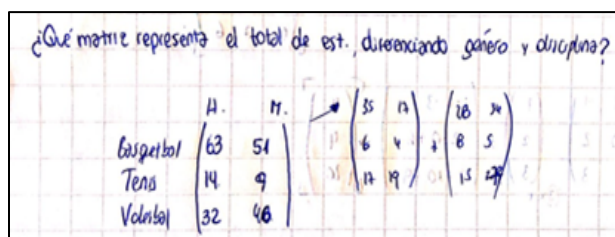 ¿Qué matriz representa el total de est., diferenciando género y disciplina?
H. M.
Basquetbol 63 51
Tenis 14 9
Voleibol 32 46
35 17
6 4
17 19
+
28 34
8 5
15 27